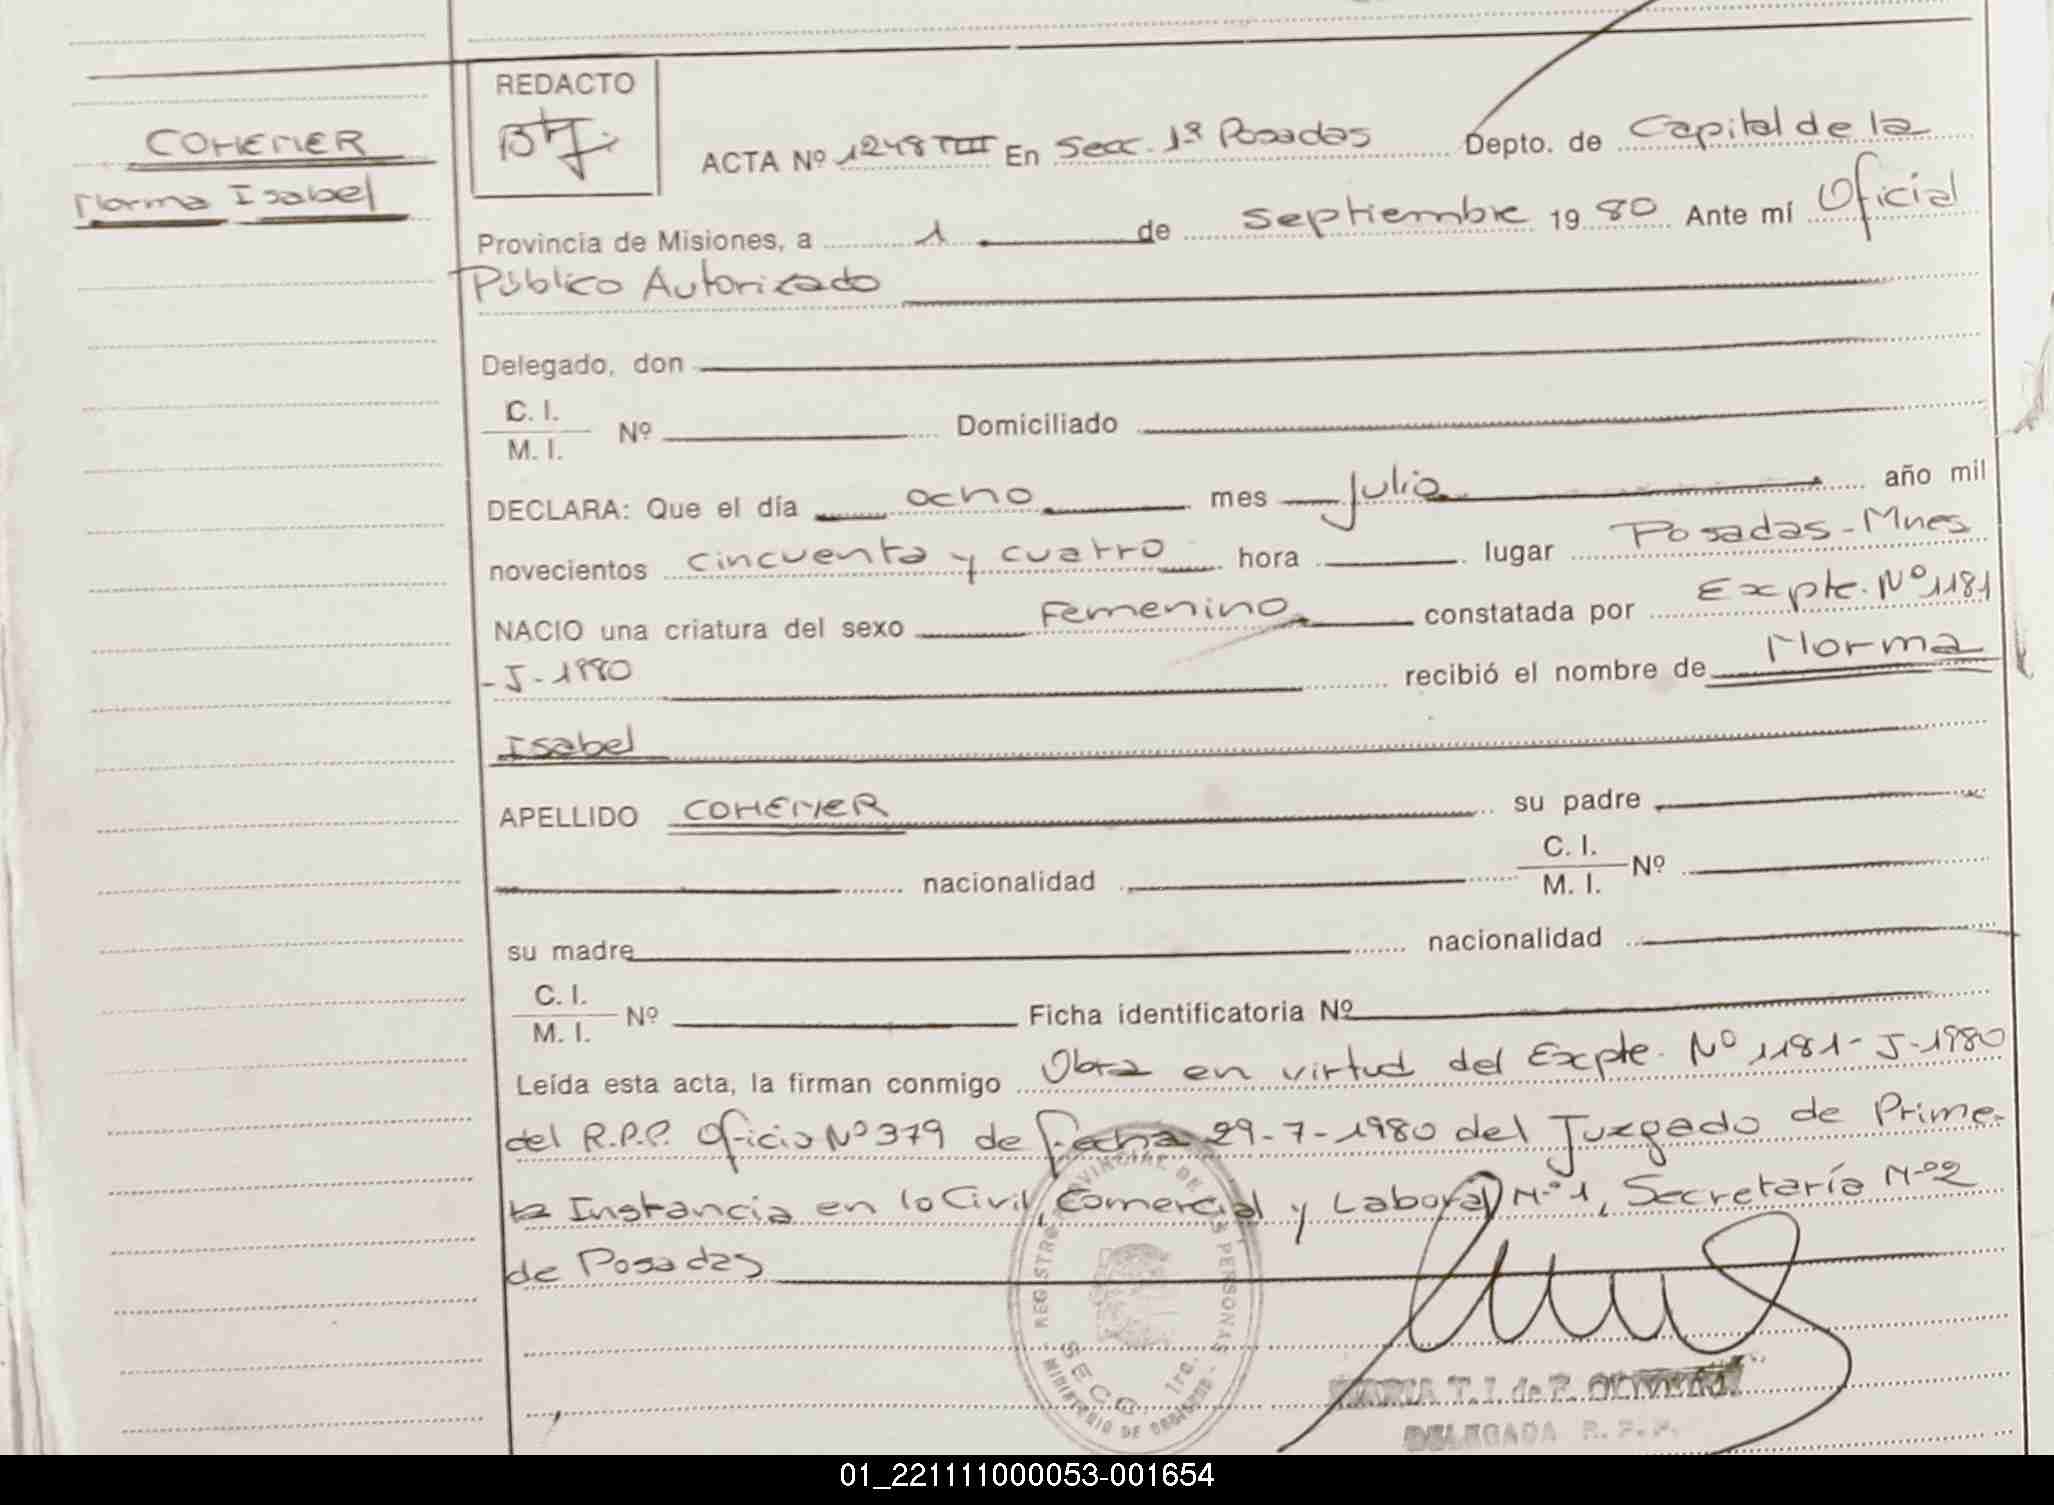 REDACTO
COHENER
Norma Isabel
ACTA Nº 1248 TIII En Secc. 1ª Posadas Depto. de Capital de la
Provincia de Misiones, a 1 de Septiembre 1980 Ante mí Oficial
Público Autorizado
Delegado, don
C. I.
M. I. Nº Domiciliado
DECLARA: Que el día ocho mes Julio año mil
novecientos cincuenta y cuatro hora lugar Posadas-Mnes
NACIO una criatura del sexo Femenino constatada por Expte. Nº 1181
-J-1980 recibió el nombre de Norma
Isabel
APELLIDO COHENER su padre
nacionalidad C. I.
M. I. Nº
su madre nacionalidad
C. I.
M. I. Nº Ficha identificatoria Nº
Leída esta acta, la firman conmigo Obra en virtud del Expte. Nº 1181-J-1980
del R.P.P. Oficio Nº 379 de fecha 29-7-1980 del Juzgado de Prime-
ra Instancia en lo Civil, Comercial y Laboral Nº 1, Secretaría Nº 2
de Posadas
REGISTRO PROVINCIAL DE LAS PERSONAS
SECC. 1ra.
MINISTERIO DE GOBIERNO
MARIA T. I. de F. OLIVEIRA
DELEGADA R. P. P.
01_221111000053-001654